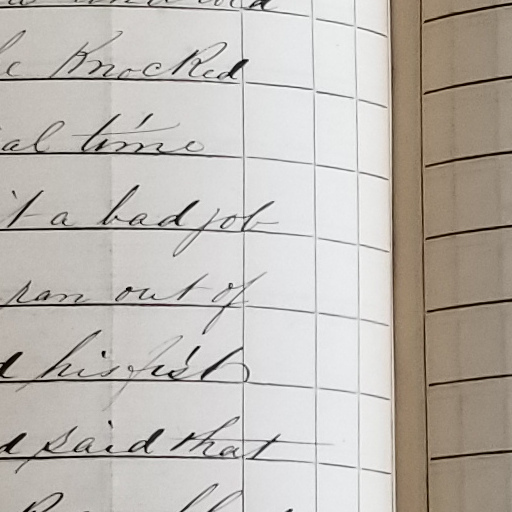 Knocked
al time
't a bad job
ran out of
d his fist
d said that